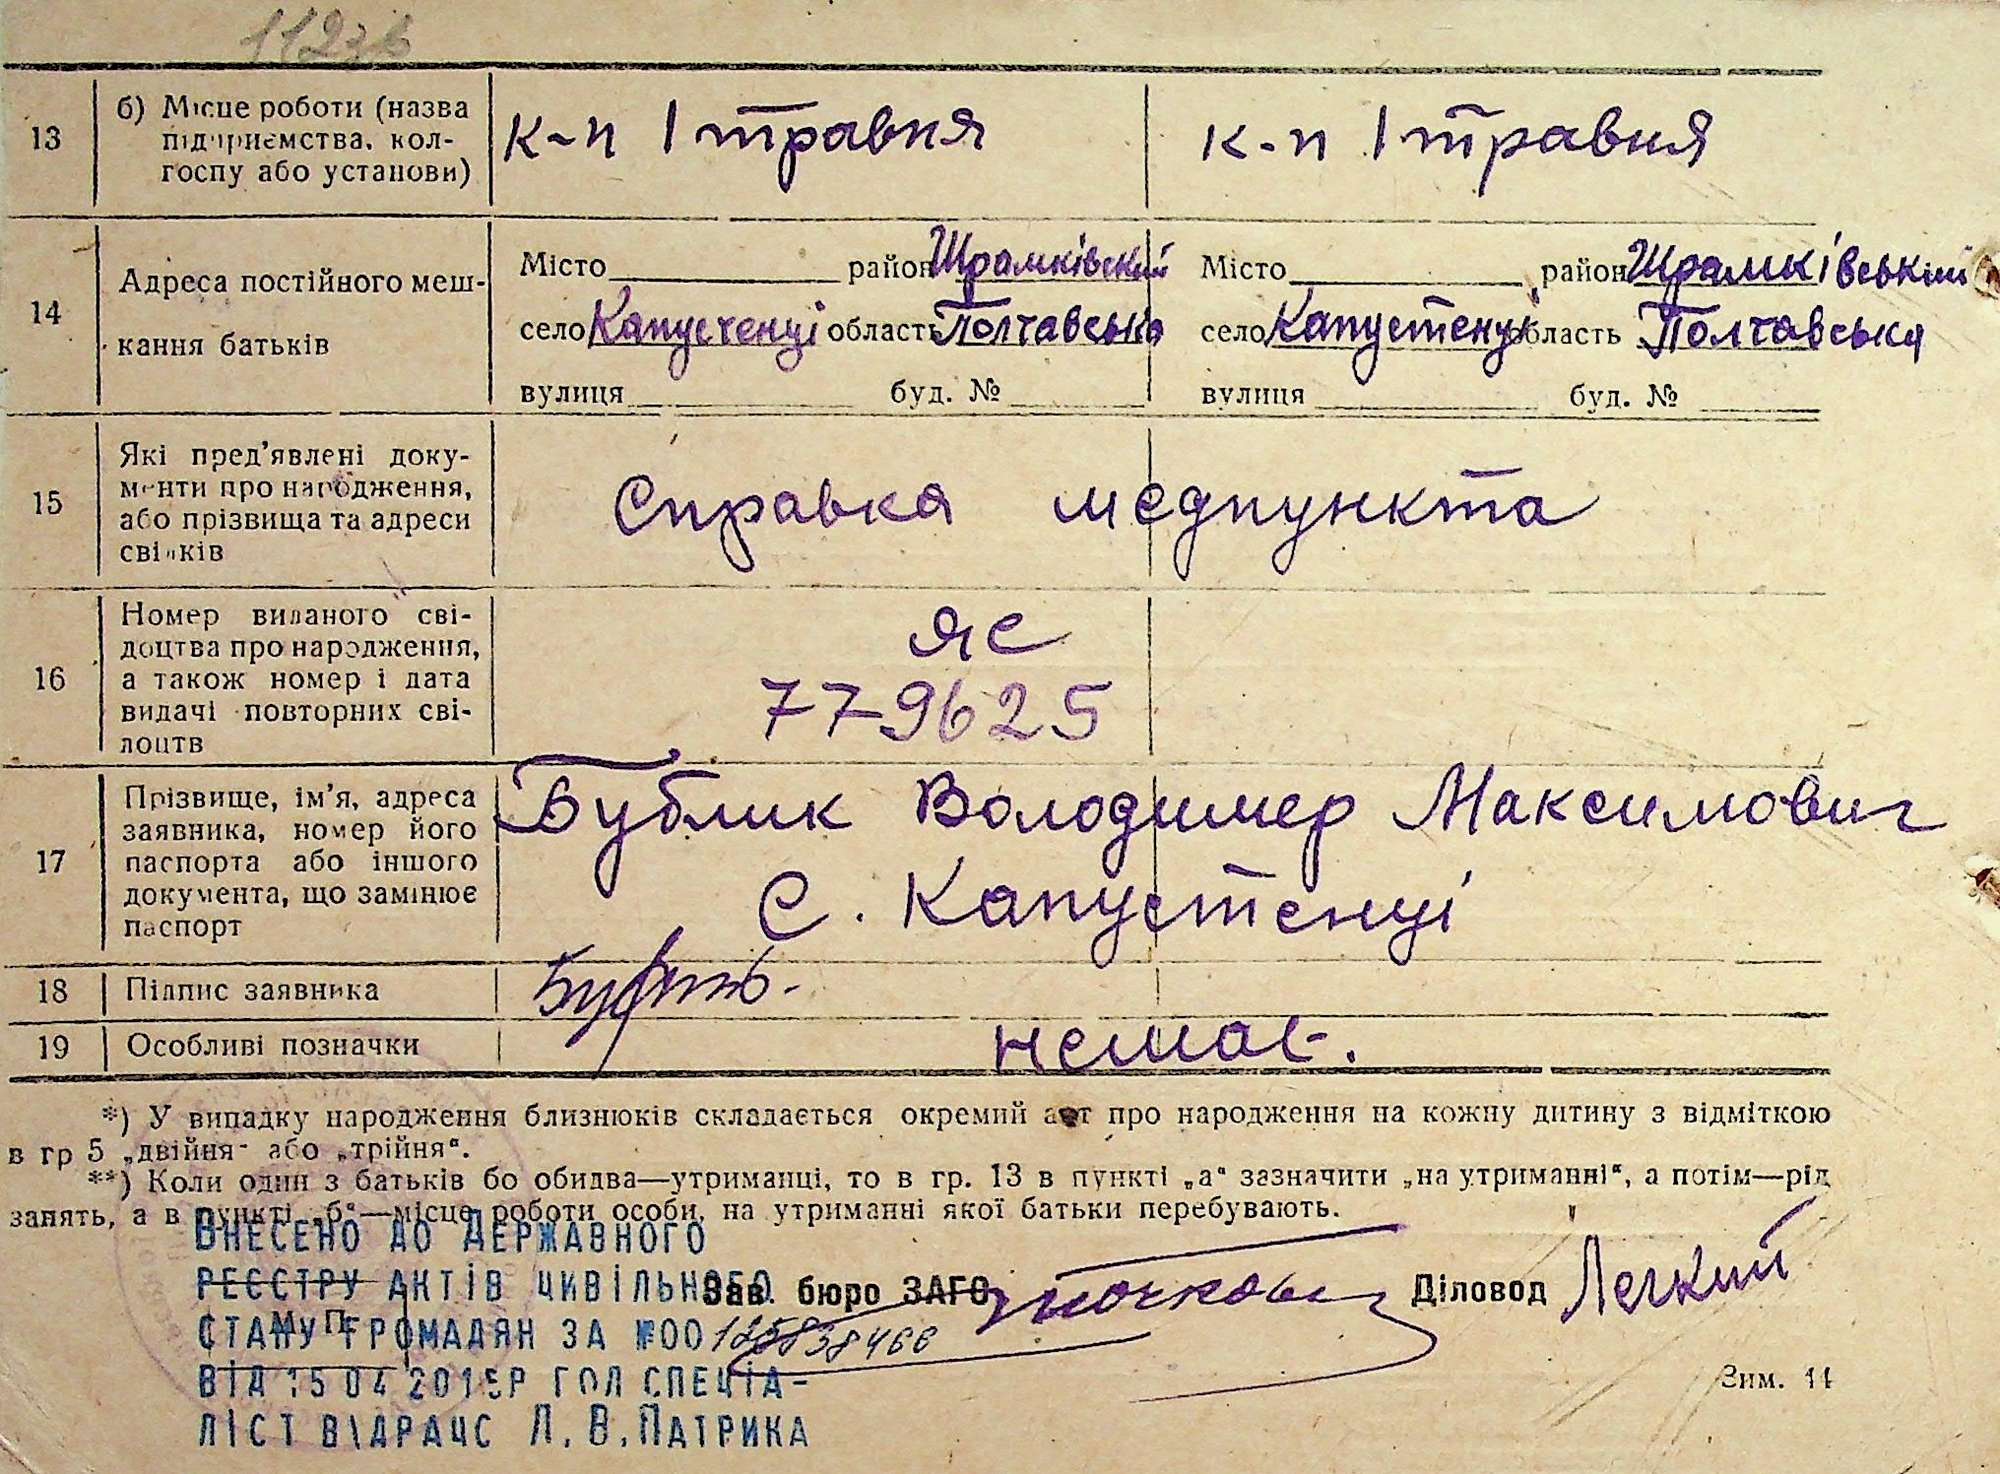 112зв
13
б) Місце роботи (назва
підприємства, кол-
госпу або установи)
к-п 1 травня
к-п 1 травня
14
Адреса постійного меш-
кання батьків
Місто район Шрамківський
село Капустенці область Полтавська
вулиця буд. №
Місто район Шрамківський
село Капустенці область Полтавська
вулиця буд. №
15
Які пред'явлені доку-
менти про народження,
або прізвища та адреси
свідків
Справка медпункта
16
Номер виданого сві-
доцтва про народження,
а також номер і дата
видачі повторних сві-
доцтв
ЯС
779625
17
Прізвище, ім'я, адреса
заявника, номер його
паспорта або іншого
документа, що замінює
паспорт
Бублик Володимер Максимович
С. Капустенці
18
Підпис заявника
19
Особливі позначки
немає.
*) У випадку народження близнюків складається окремий акт про народження на кожну дитину з відміткою
в гр 5 „двійня" або „трійня".
**) Коли один з батьків бо обидва—утриманці, то в гр. 13 в пункті „а" зазначити „на утриманні", а потім—рід
занять, а в пункті „б"—місце роботи особи, на утриманні якої батьки перебувають.
Внесено до Державного
реєстру актів цивільного
стану громадян за №00125838466
від 15 04 2015р гол спеціа-
ліст відрацс Л. В. Патрика
М. П.
Зав. бюро ЗАГС
Діловод Легкий
Зим. 14